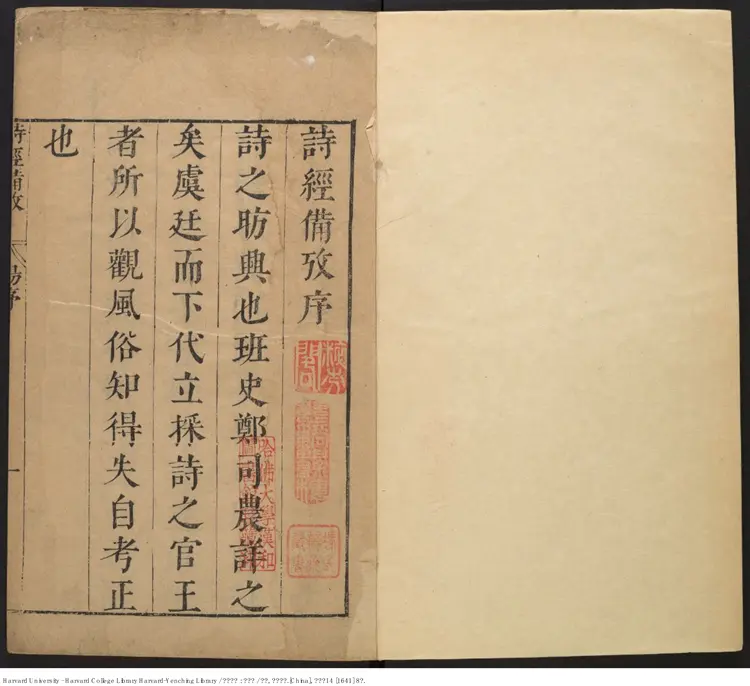 詩經備攷序
詩之昉興也班史鄭司農詳之
矣虞廷而下代立採詩之官王
者所以觀風俗知得失自考正
也
詩經備攷
序
一
哈佛大學漢和
圖書館珍藏印
Harvard University - Harvard College Library Harvard-Yenching Library / ???? : ??? / ??, ????. [China], ???14 [1641] 8?.